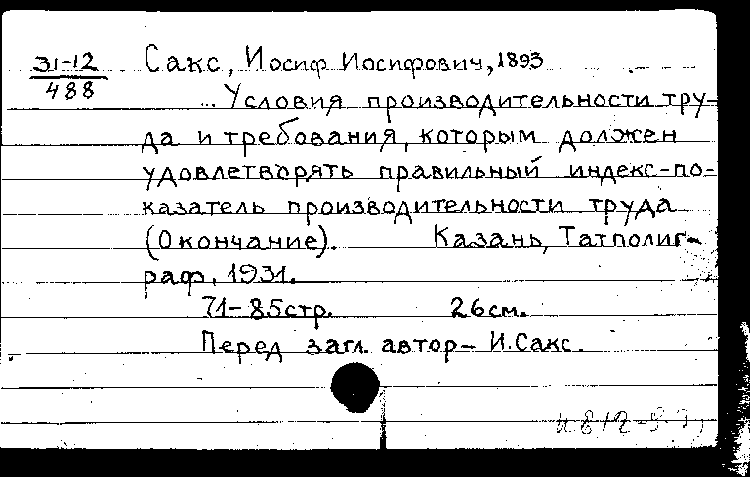 31-12
488
Сакс, Иосиф Иосифович, 1893
... Условия производительности тру-
да и требования, которым должен
удовлетворять правильный индекс-по-
казатель производительности труда
(Окончание). Казань, Татполиг-
раф, 1931.
71-85стр. 26см.
Перед загл. автор - И.Сакс.